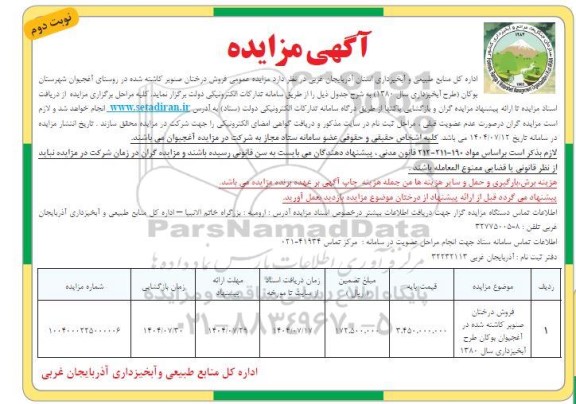 نوبت دوم
آگهی مزایده
اداره کل منابع طبیعی و آبخیزداری استان آذربایجان غربی در نظر دارد مزایده عمومی فروش درختان صنوبر کاشته شده در روستای آغجیوان شهرستان
بوکان (طرح آبخیزداری سال ۱۳۸۰) به شرح جدول ذیل را از طریق سامانه تدارکات الکترونیکی دولت برگزار نماید. کلیه مراحل برگزاری مزایده از دریافت
اسناد مزایده تا ارائه پیشنهاد مزایده گران و بازگشایی پاکتها از طریق درگاه سامانه تدارکات الکترونیکی دولت (ستاد) به آدرس www.setadiran.ir انجام خواهد شد و لازم
است مزایده گران درصورت عدم عضویت قبلی، مراحل ثبت نام در سایت مذکور و دریافت گواهی امضای الکترونیکی را جهت شرکت در مزایده محقق سازند. تاریخ انتشار مزایده
در سامانه تاریخ ۱۴۰۴/۰۷/۱۲ می باشد. کلیه اشخاص حقیقی و حقوقی عضو سامانه ستاد مجاز به شرکت در مزایده آغجیوان می باشند.
لازم بذکر است براساس مواد ۱۹۰-۲۱۱-۲۱۲ قانون مدنی، پیشنهاد دهندگان می بایست به سن قانونی رسیده باشند و مزایده گران در زمان شرکت در مزایده نباید
از نظر قانونی یا قضایی ممنوع المعامله باشند.
هزینه برش،بارگیری و حمل و سایر هزینه ها من جمله هزینه چاپ آگهی بر عهده برنده مزایده می باشد.
پیشنهاد می گردد قبل از ارائه پیشنهاد از درختان موضوع مزایده بازدید بعمل آورید.
اطلاعات تماس دستگاه مزایده گزار جهت دریافت اطلاعات بیشتر درخصوص اسناد مزایده آدرس: ارومیه: بزرگراه خاتم الانبیا – اداره کل منابع طبیعی و آبخیزداری آذربایجان
غربی تلفن: ۸-۳۲۷۷۵۰۰۵
اطلاعات تماس سامانه ستاد جهت انجام مراحل عضویت در سامانه: مرکز تماس ۴۱۹۳۴-۰۲۱
دفتر ثبت نام: آذربایجان غربی ۳۲۲۳۲۱۱۳
ردیف موضوع مزایده قیمت پایه مبلغ تضمین (ریال) زمان دریافت اسناد از سایت تا مورخه مهلت ارائه پیشنهاد زمان بازگشایی شماره مزایده
۱ فروش درختان صنوبر کاشته شده در آغجیوان بوکان طرح آبخیزداری سال ۱۳۸۰ ۳.۴۵۰.۰۰۰.۰۰۰ ۱۷۲.۵۰۰.۰۰۰ ۱۴۰۴/۰۷/۱۷ ۱۴۰۴/۰۷/۲۹ ۱۴۰۴/۰۷/۳۰ ۱۰۰۴۰۰۰۲۲۵۰۰۰۰۰۶
اداره کل منابع طبیعی وآبخیزداری آذربایجان غربی
ParsNamadData
۰۲۱-۸۸۳۴۹۶۷۰-۵